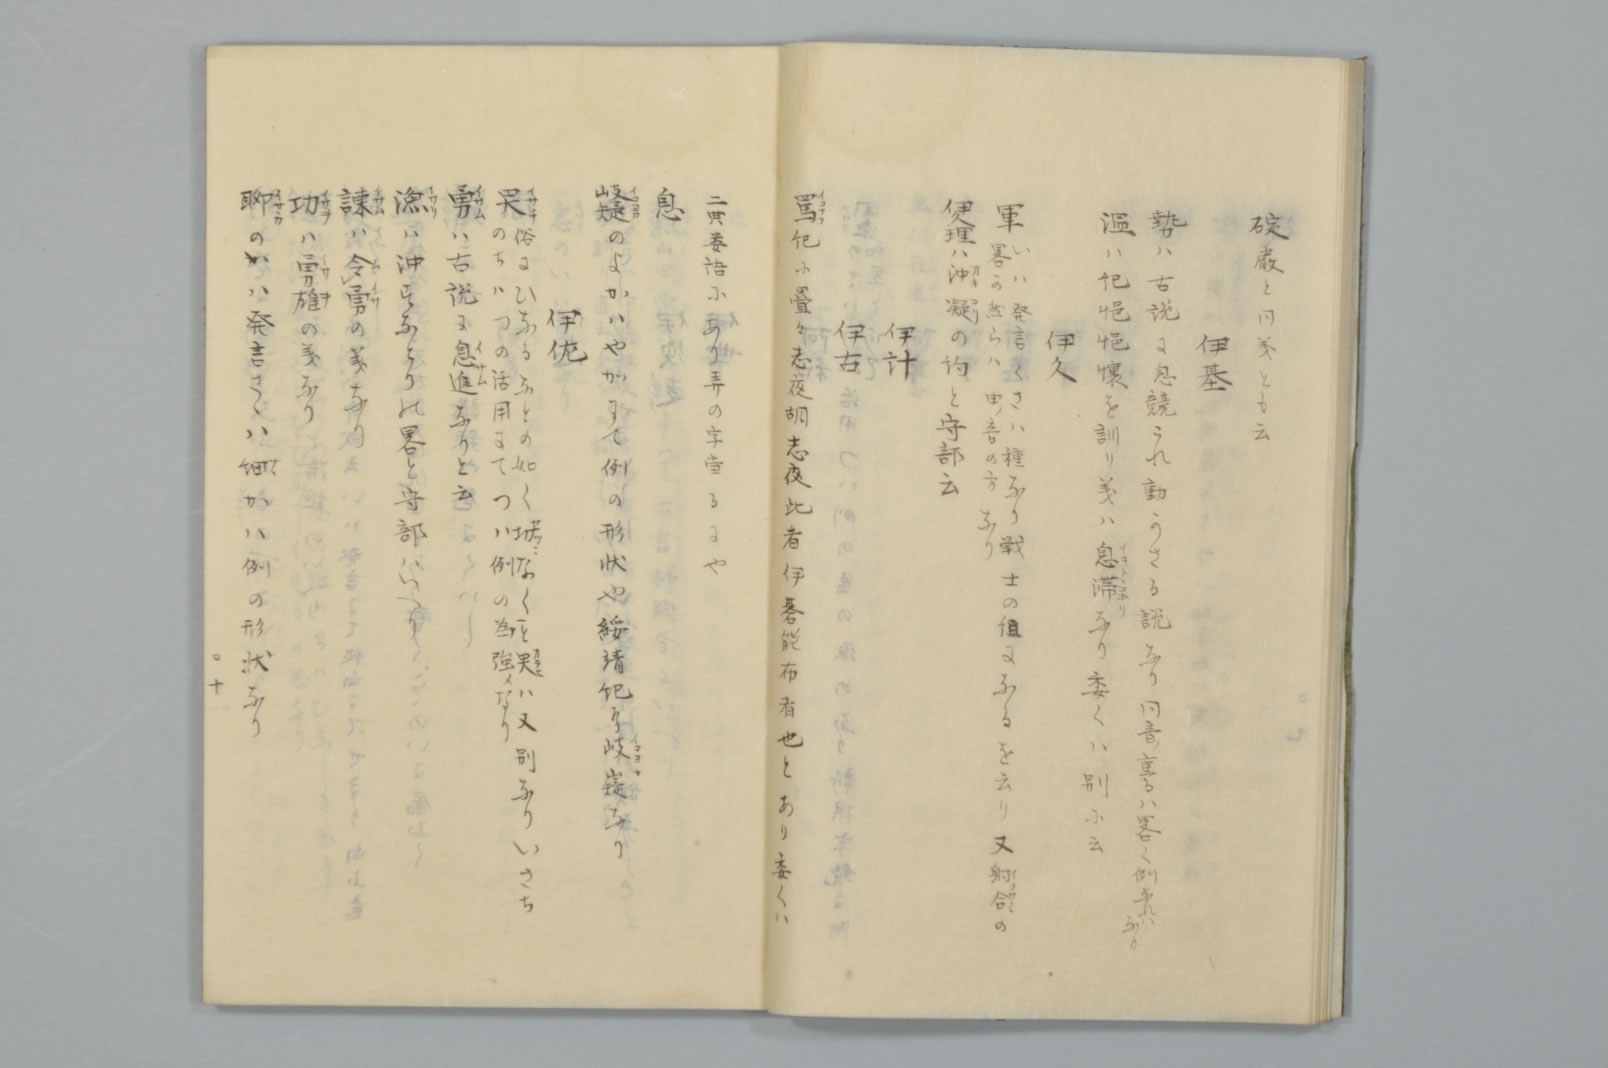 碇ハ厳と同義とも云
伊基
勢ハ古説に息競これ動うさる説なり同音重るハ畧く例なれハなり
温ハ紀悒悒懐を訓り義ハ息滞なり委くハ別に云
伊久
軍いハ発言くさハ種なり戦士の俱にふるを云り又射合の
畧か然らハ申音の方なり
伊理ハ沖凝の約と守部云
伊計
伊古
罵紀に疊々志夜胡志夜此者伊碁能布有也とあり委くハ
二典委語にあり弄の字当るにや
息
嶷のよかハやかにて例の形状や綏靖紀に岐嶷なり
伊佐
哭俗にひなるふとの如く拠なくを哭ハ又別なりいさち
のちハつの活用にてつハ例の為強メなり
勇ハ古説に息進なりと云
漁ハ沖すなとりの畧と守部ハいへり
諫ハ令勇の義なり
功ハ勇雄の義なり
聊のかハ発言さゝハ細かハ例の形状なり
十一